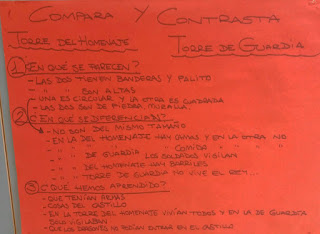 COMPARA Y CONTRASTA
TORRE DEL HOMENAJE
TORRE DE GUARDIA
1 ¿EN QUÉ SE PARECEN?
- LAS DOS TIENEN BANDERAS Y PALITO
- " " SON ALTAS
- UNA ES CIRCULAR Y LA OTRA ES CUADRADA
- LAS DOS SON DE PIEDRA, MURALLA
2 ¿EN QUÉ SE DIFERENCIAS?
- NO SON DEL MISMO TAMAÑO
- EN LA DEL HOMENAJE HAY CAMAS Y EN LA OTRA NO
- " " " " " COMIDA " " " "
- " " DE GUARDIA LOS SOLDADOS VIGILAN
- " " DEL HOMENAJE HAY BARRILES
- " " TORRE DE GUARDIA NO VIVE EL REY...
3 ¿QUÉ HEMOS APRENDIDO?
- QUE TENÍAN ARMAS
- COSAS DEL CASTILLO
- EN LA TORRE DEL HOMENAJE VIVÍAN TODOS Y EN LA DE GUARDIA
SOLO VIGILABAN
- QUE LOS DRAGONES NO PODÍAN ENTRAR EN EL CASTILLO